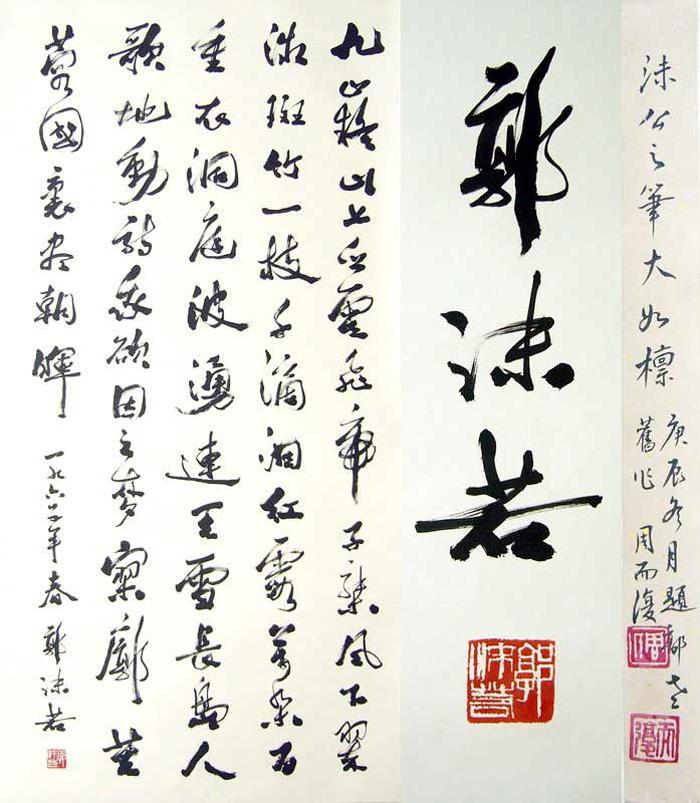 沫公之筆大如檁
庚辰冬月題郭老
舊作 周而復
郭沫若
郭沫若
九嶷山上白雲飛帝子乘風下翠
微斑竹一枝千滴泪紅霞萬朵百
重衣洞庭波湧連天雪長島人
歌地動詩我欲因之夢寥廓芙
蓉國裏盡朝暉 一九六五年春 郭沫若